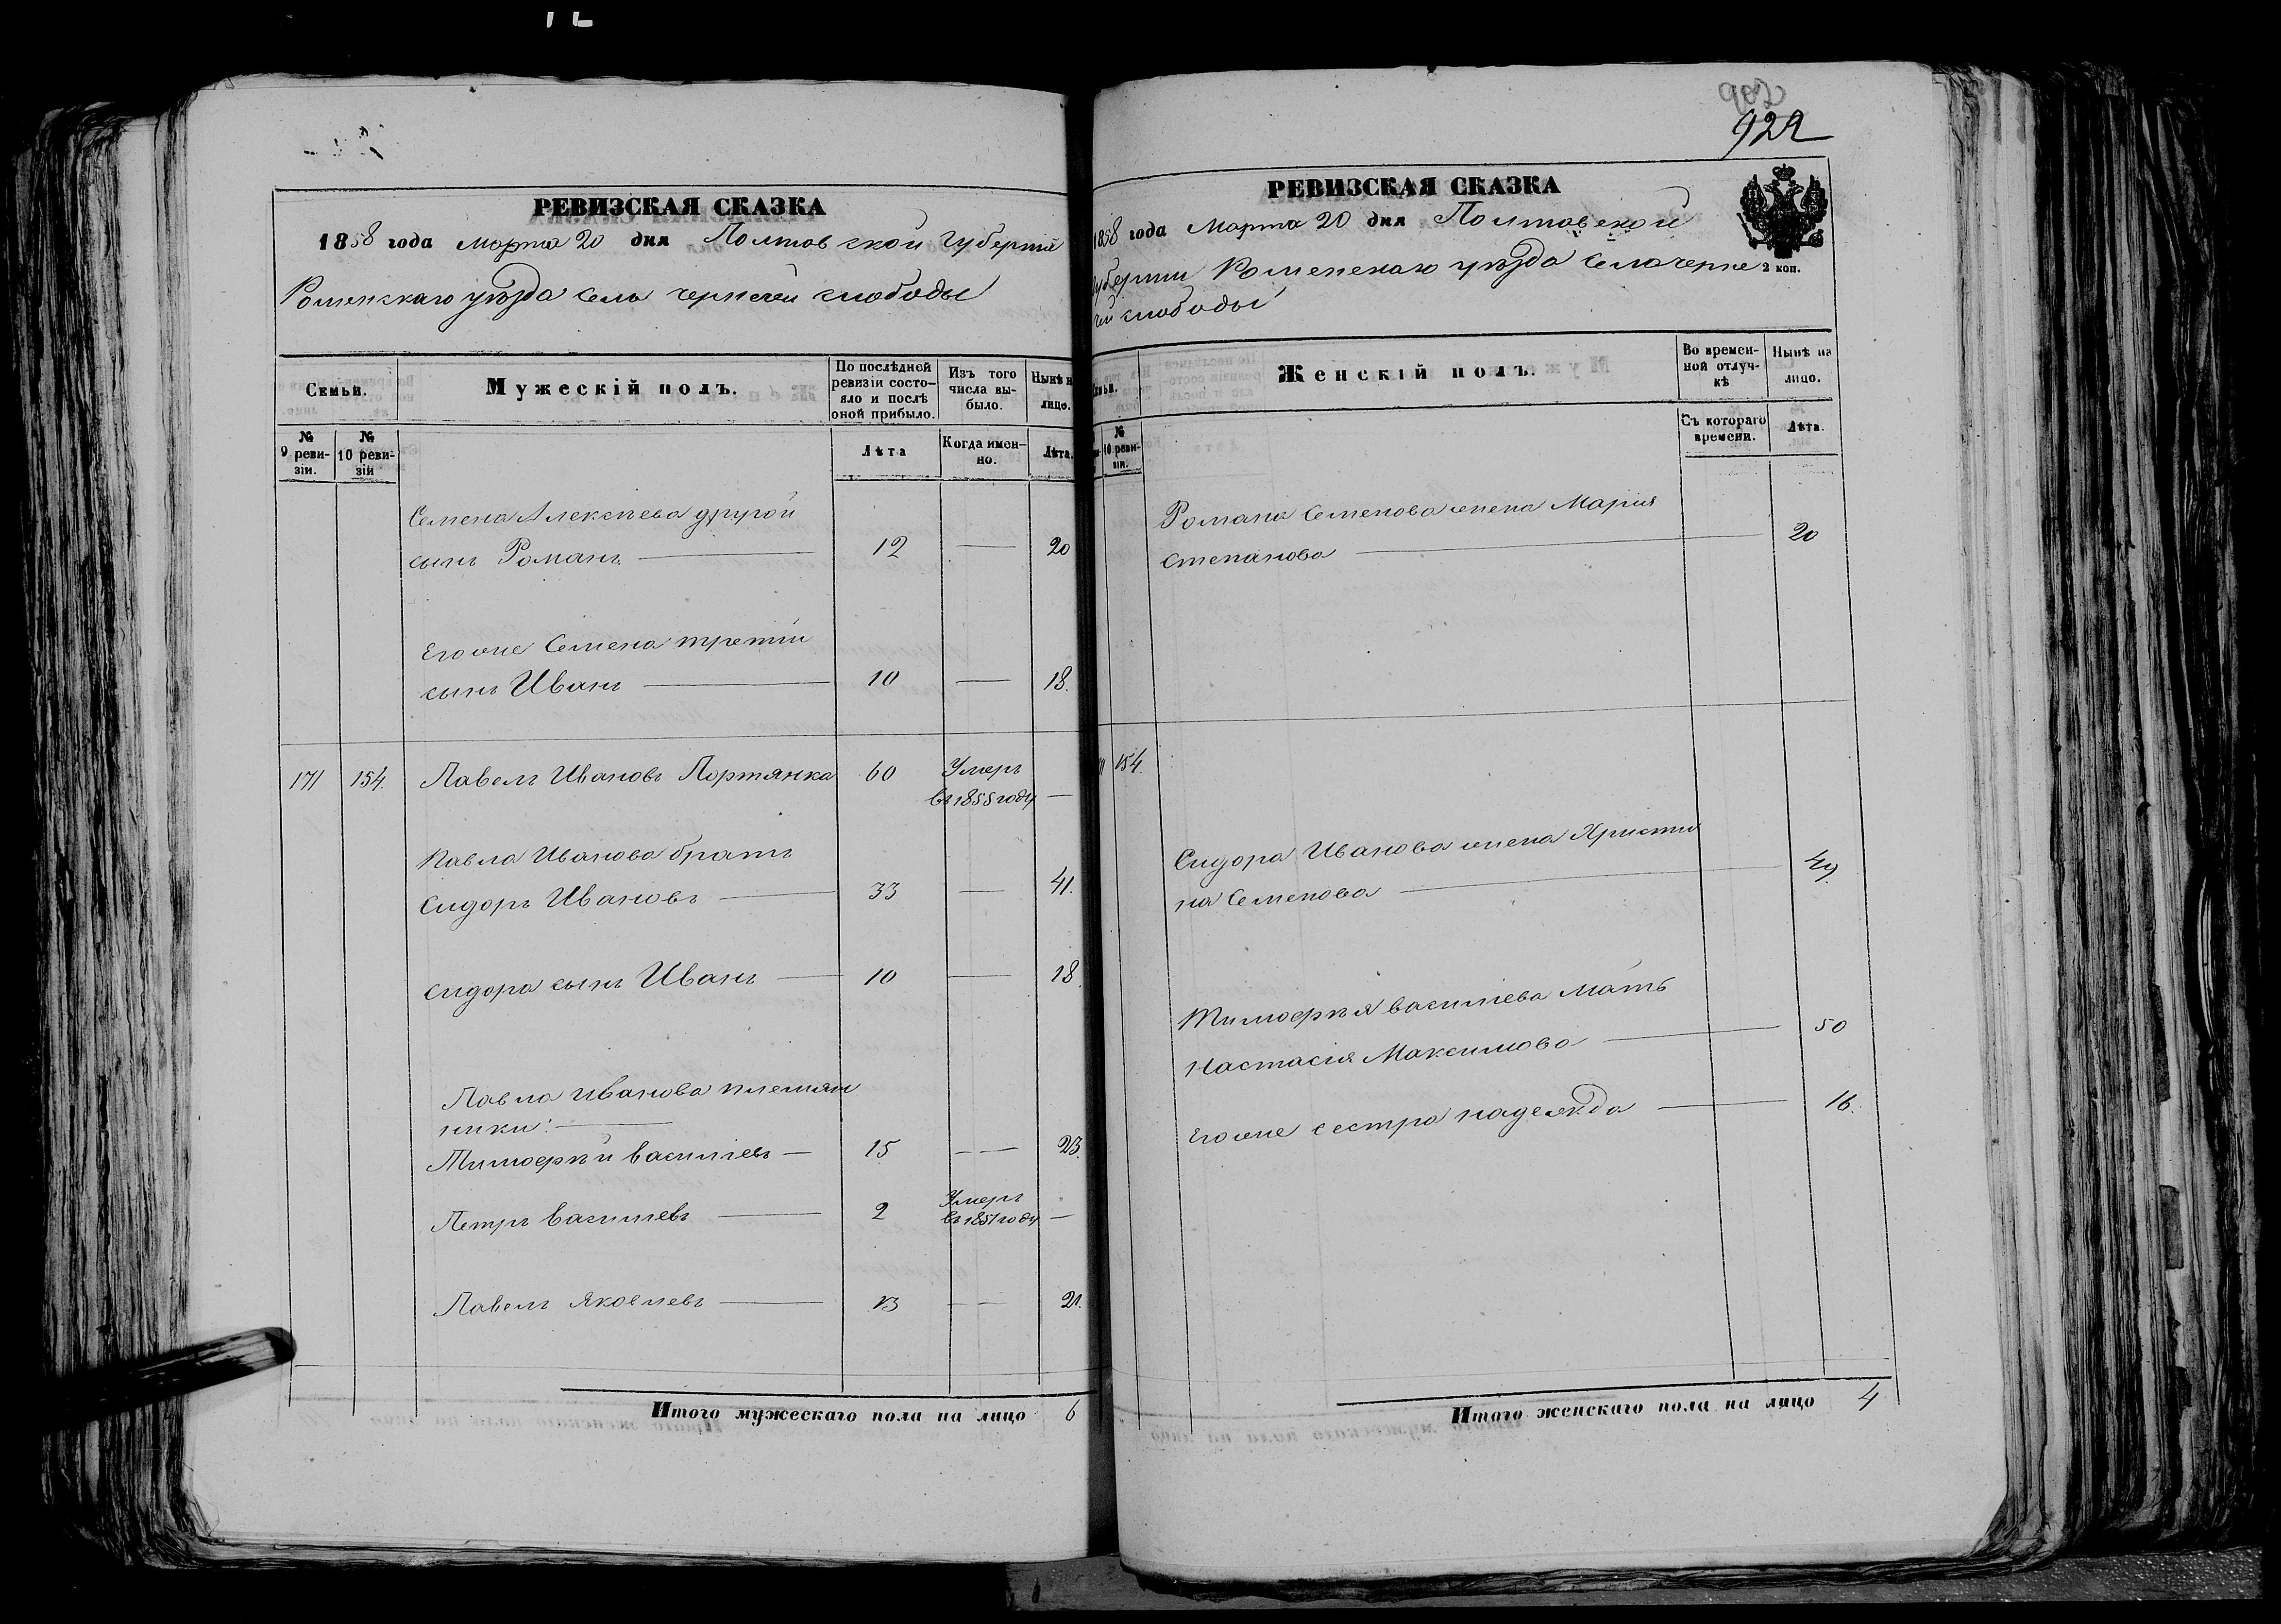 РЕВИЗСКАЯ СКАЗКА
1858 года Марта 20 дня Полтавской Губерніи
Роменскаго уѣзда села чернечей слободы
Семьи.
Мужескій полъ.
По послѣдней ревизіи состояло и послѣ оной прибыло.
Изъ того числа выбыло.
Нынѣ на лицо.
№ 9 ревизіи.
№ 10 ревизіи
Лѣта
Когда именно.
Лѣта.
Семена Алексѣева другой
сынъ Романъ 12 20
Его же Семена третій
сынъ Иванъ 10 18.
171 154. Павелъ Ивановъ Портянка 60 Умеръ
въ 1855 году
Павла Иванова братъ
Сидоръ Ивановъ 33 41.
Сидора сынъ Иванъ 10 18.
Павла Иванова племян
ники:
Тимофѣй Васильевъ 15 23.
Петръ Васильевъ 2 Умеръ
въ 1851 году
Павелъ Яковлевъ 13 21.
Итого мужескаго пола на лицо 6
902
922
РЕВИЗСКАЯ СКАЗКА
1858 года Марта 20 дня Полтавской
губерніи Роменскаго уѣзда села черне
2 коп.
чей слободы
Женскій полъ.
Во временной отлучкѣ
Нынѣ на лицо.
№ 10 ревизіи.
Съ котораго времени.
Лѣта.
Романа Семенова жена Марія
Степанова 20
154.
Сидора Иванова жена Христи
на Семенова 49.
Тимофѣя Васильева Мать
Настасія Максимова 50
Его же сестра Надежда 16.
Итого женскаго пола на лицо 4